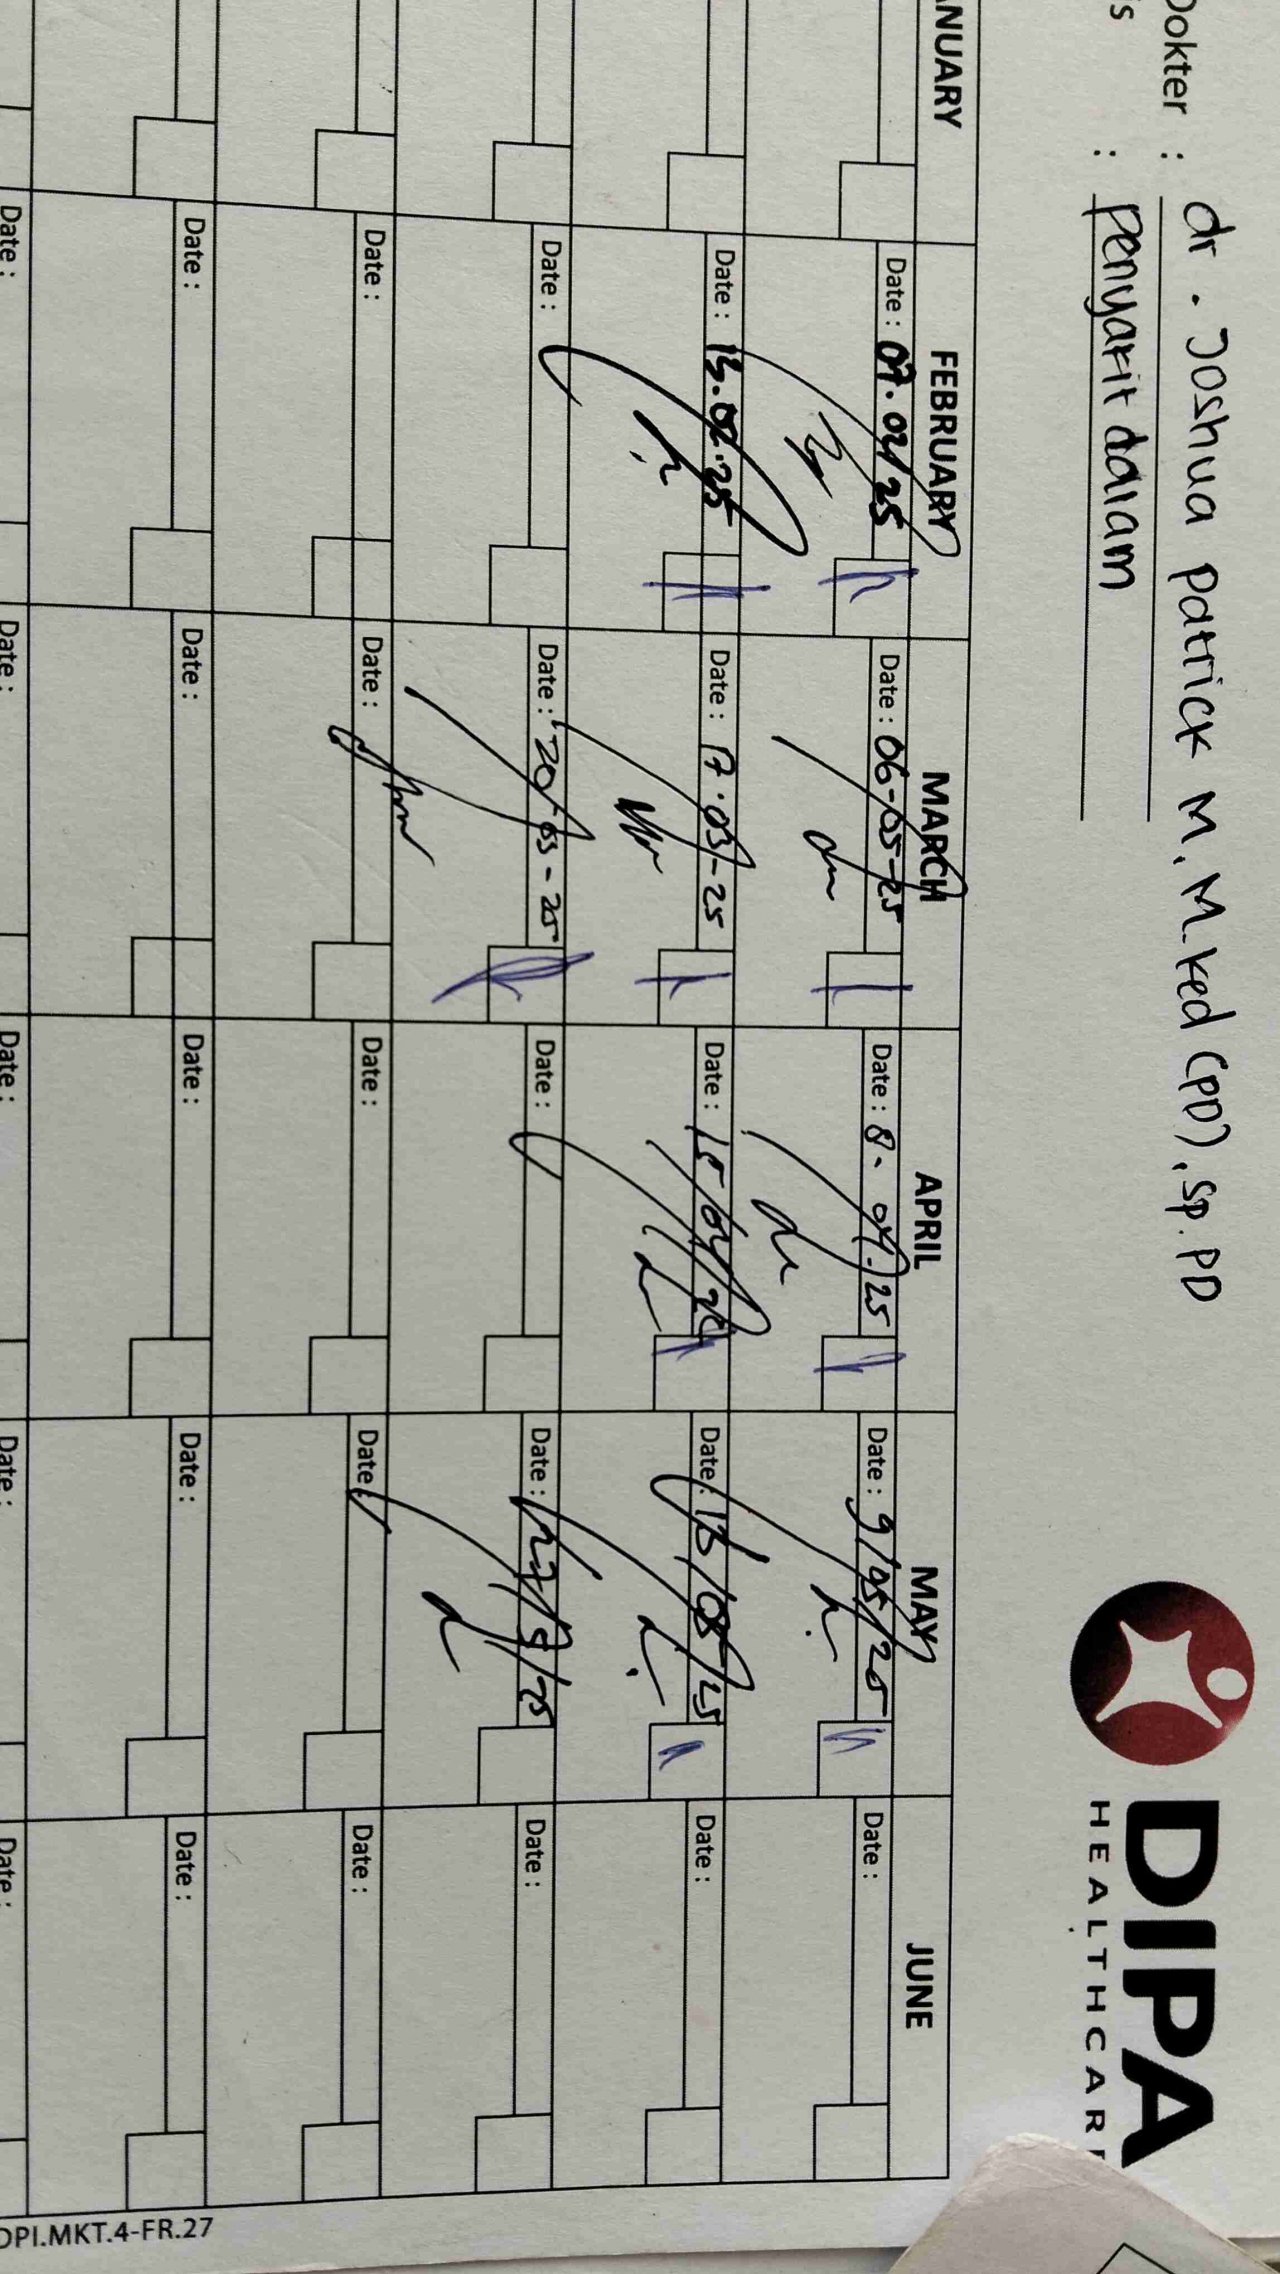 Dokter : dr. Joshua patrick M. M.ked (PD), Sp.PD
s : penyakit dalam
DIPA
HEALTHCARE
NUARY FEBRUARY MARCH APRIL MAY JUNE
Date : 07.02/25 Date : 06-03-25 Date : 8. 04. 25 Date : 9/05/25 Date :
Date : 13.02.25 Date : 17.03-25 Date : 15/04/25 Date : 13/05/25 Date :
Date : Date : 20/03-25 Date : Date : 27/5/25 Date :
Date : Date : Date : Date Date :
Date : Date : Date : Date : Date :
Date : Date : Date : Date : Date :
DPI.MKT.4-FR.27